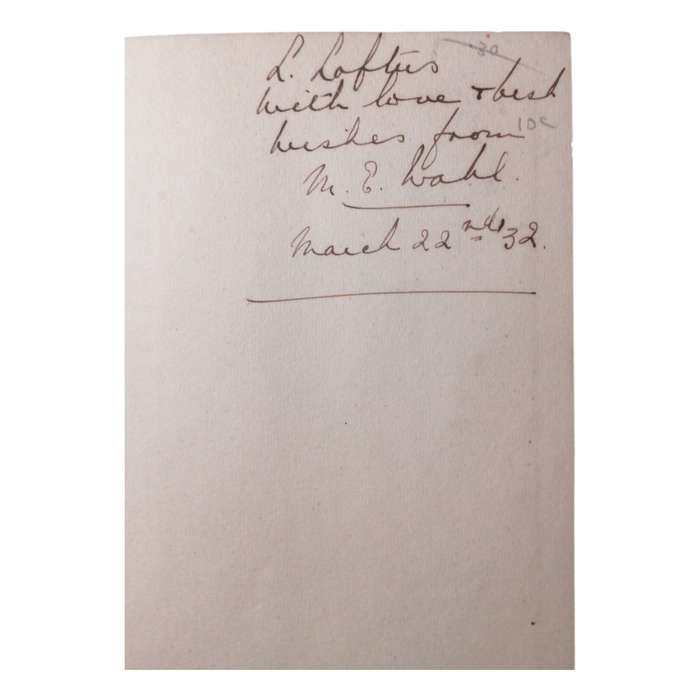 L. Loftus
with love + best
wishes from
M. E. Wahl.
March 22nd '32.
30
10c